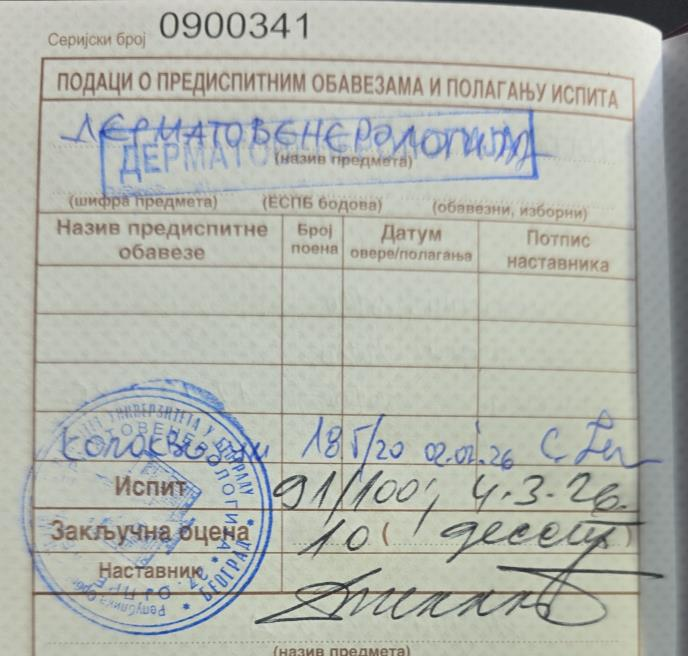 Серијски број 0900341
ПОДАЦИ О ПРЕДИСПИТНИМ ОБАВЕЗАМА И ПОЛАГАЊУ ИСПИТА
ДЕРМАТОВЕНЕРОЛОГИЈА
ДЕРМАТО
(назив предмета)
(шифра предмета) (ЕСПБ бодова) (обавезни, изборни)
Назив предиспитне обавезе Број поена Датум овере/полагања Потпис наставника
колоквијум 18 /20 02.02.26
Испит 91/100 4.3.26.
Закључна оцена 10 (десет)
Наставник
УНИВЕРЗИТЕТА У БЕОГРАДУ
БЕОГРАД
(назив предмета)